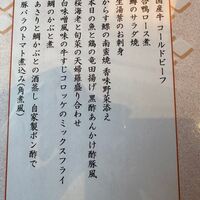 国産牛 コールドビーフ
合鴨ロース煮
鯛のサラダ焼
からす鰈の南蛮焼 香味野菜添え
生湯葉のお刺身
本日の魚と鶏の竜田揚げ 黒酢あんかけ酢豚風
桜海老と旬菜の天婦羅盛り合わせ
白味噌風味の牛すじコロッケのミックスフライ
鯛のかぶと煮
あさりと鯛かぶとの酒蒸し 自家製ポン酢で
豚バラのトマト煮込み(角煮風)